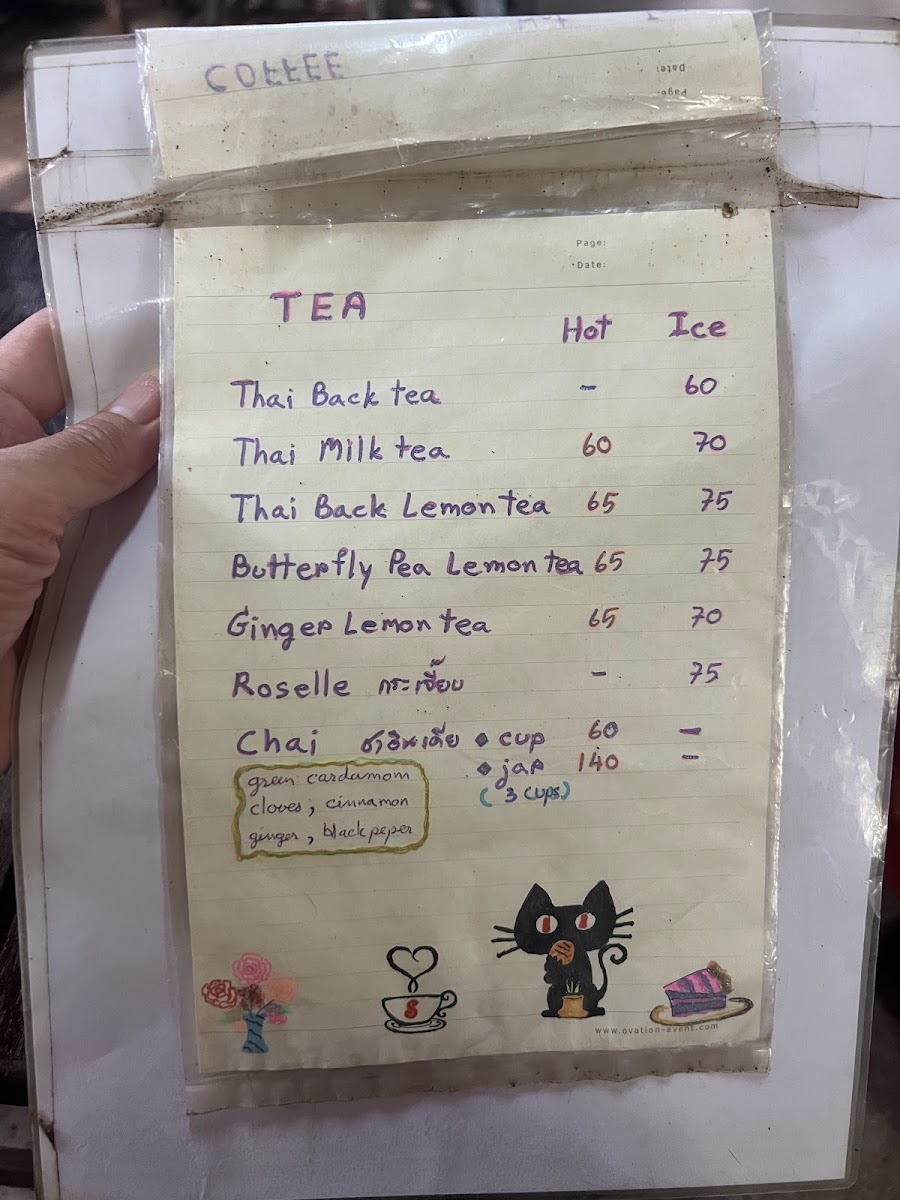 COFFEE
Date:
Page:
Page:
Date:
TEA
Hot Ice
Thai Back tea - 60
Thai Milk tea 60 70
Thai Back Lemon tea 65 75
Butterfly Pea Lemon tea 65 75
Ginger Lemon tea 65 70
Roselle กระเจี๊ยบ - 75
Chai ชาอินเดีย • cup 60 -
• jar 140 -
(3 cups)
green cardamom
cloves, cinnamon
ginger, black peper
www.ovation-event.com